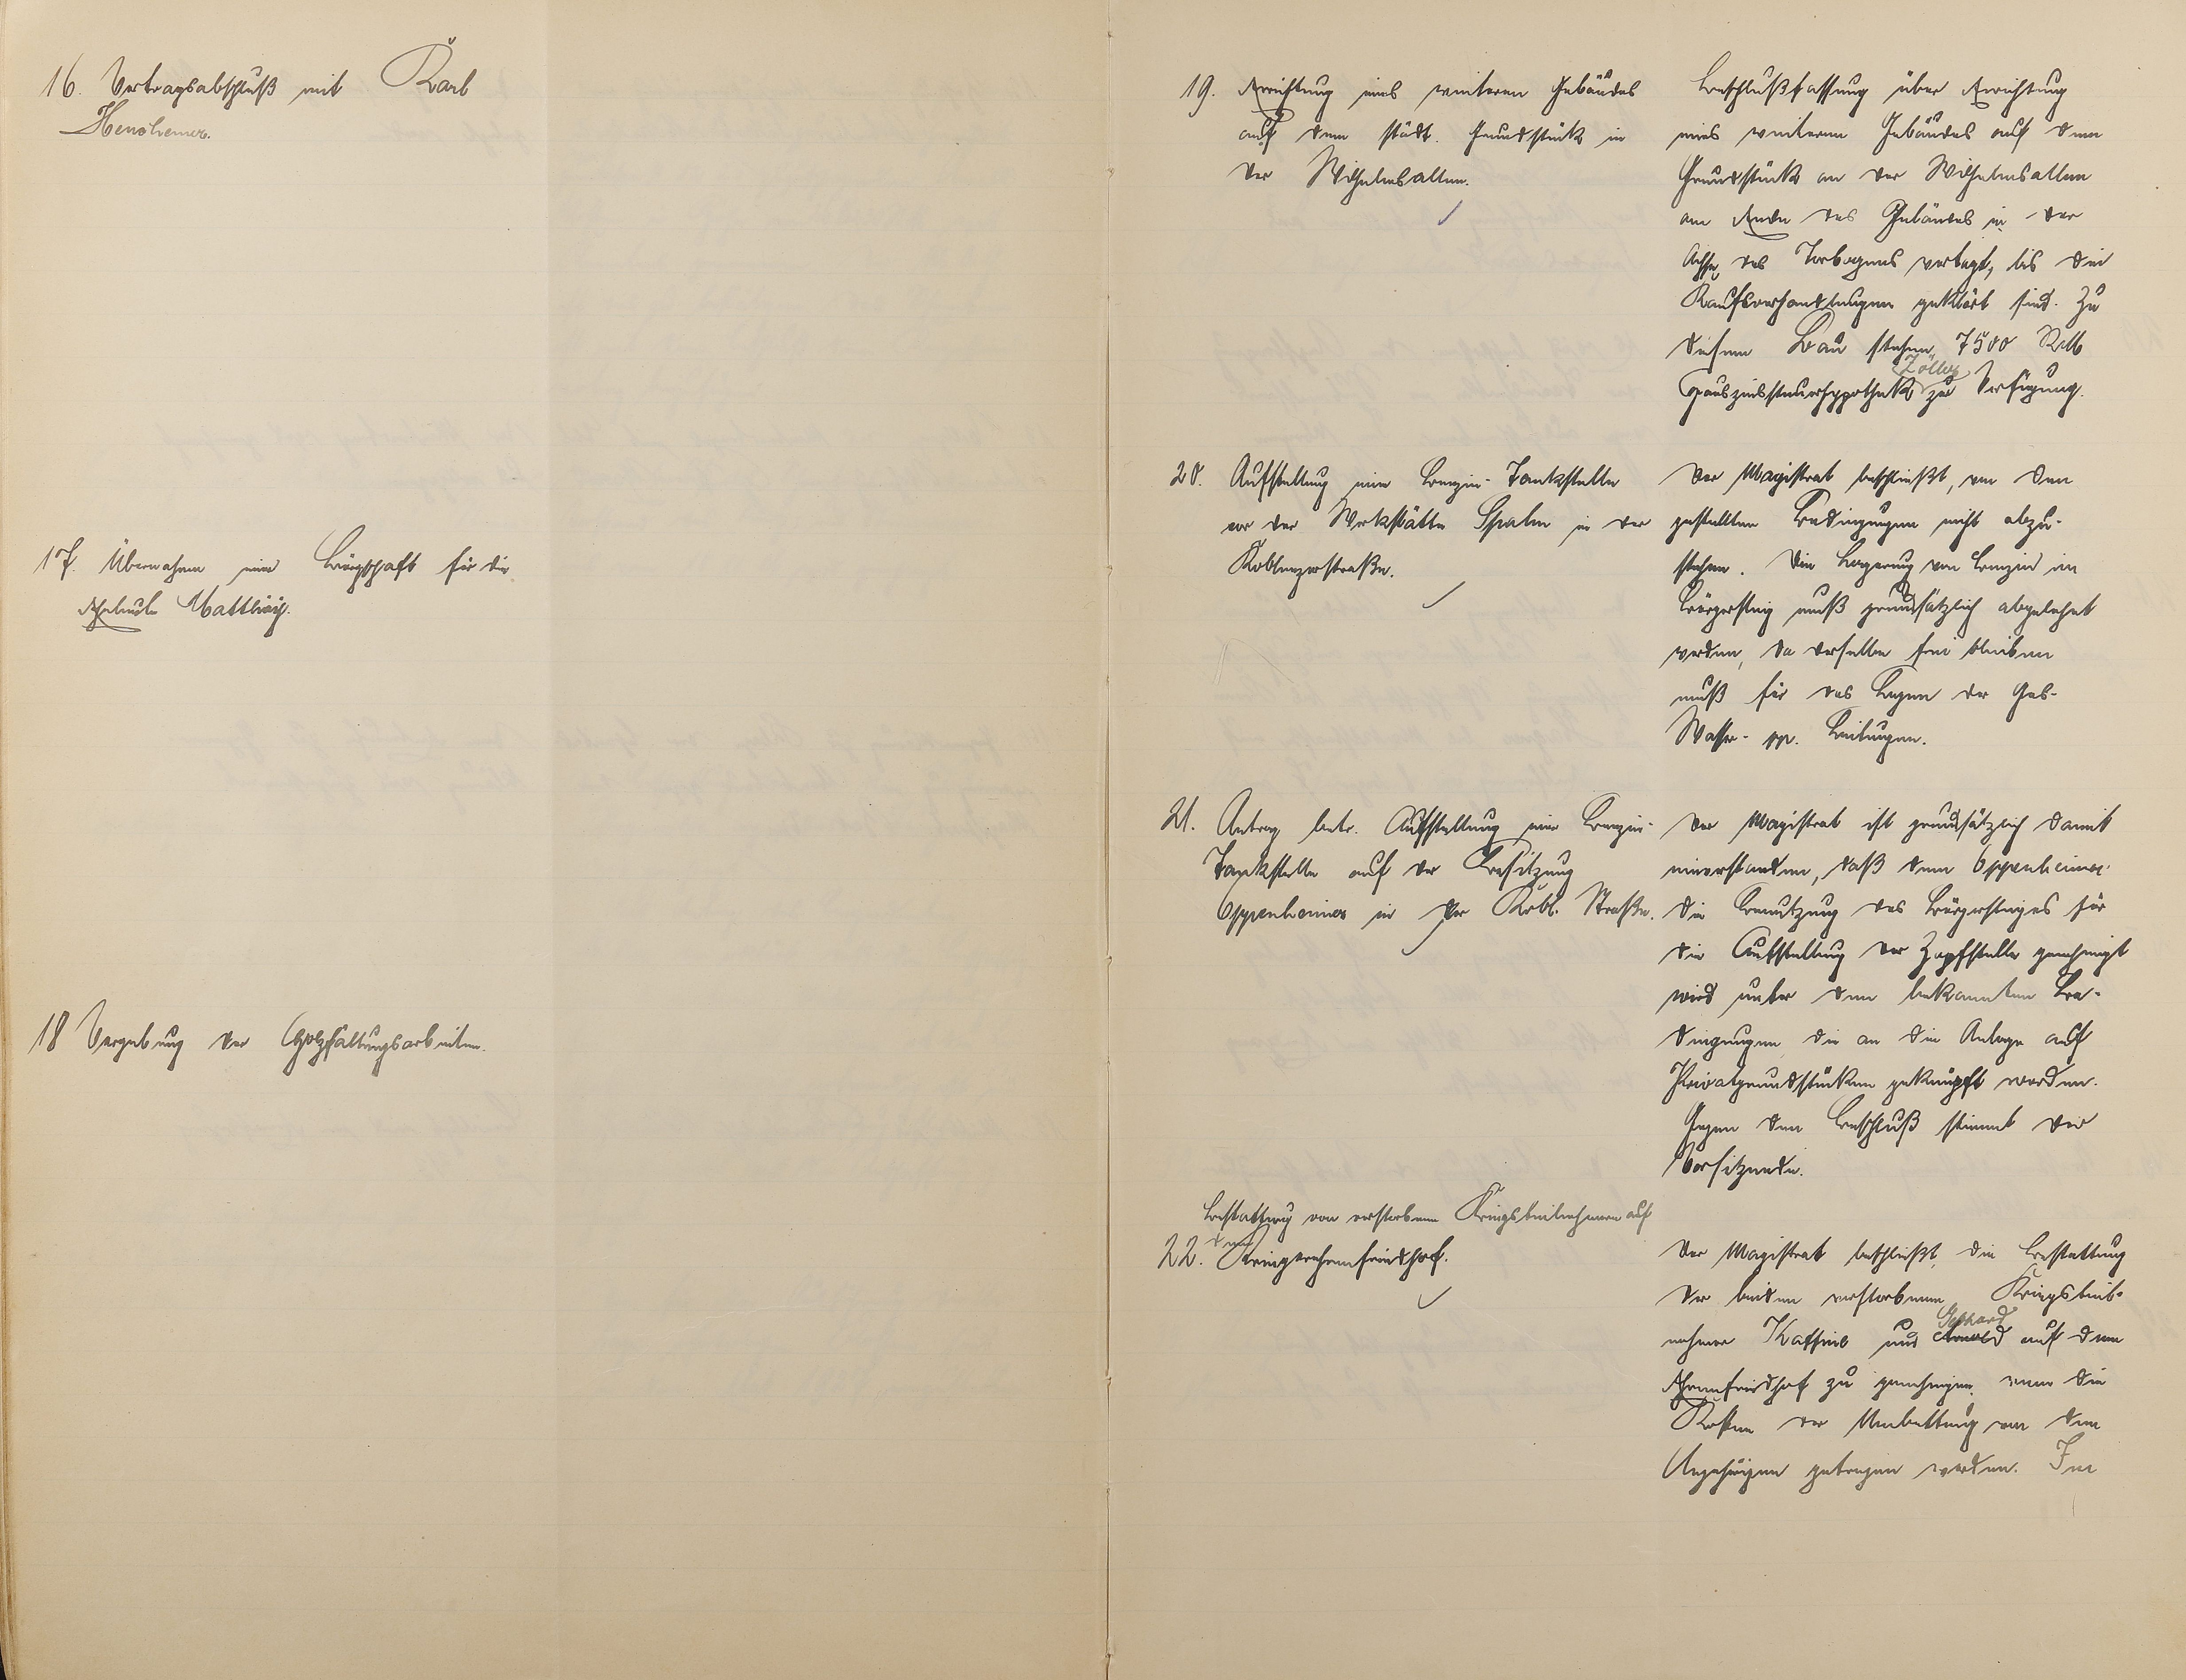 16. Vertragsabschluß mit Karl
Hensheimer.
17. Übernahme einer Bürgschaft für die
Eheleute Matthäy.
18 Vergebung der Holzfällungsarbeiten.
19. Errichtung eines weiteren Gebäudes
auf dem städt. Grundstück in
der Wilhelmsallee.
Beschlußfassung über Errichtung
eines weiteren Gebäudes auf dem
Grundstück an der Wilhelmsallee
am Ende des Gebäudes in der
Achse des Torbogens vertagt, bis die
Kaufverhandlungen geklärt sind. Zu
diesem Bau stehen 7500 RM
Zöller
Hauszinssteuerhypothek zur Verfügung.
20. Aufstellung einer Benzin-Tankstelle
vor der Werkstätte Spalm in der
Koblenzerstraße.
Der Magistrat beschließt, von den
gestellten Bedingungen nicht abzu-
stehen. Die Lagerung von Benzin im
Bürgersteig muß grundsätzlich abgelehnt
werden, da derselbe frei bleiben
muß für das Legen der Gas-
Wasser- pp. Leitungen.
21. Antrag betr. Aufstellung einer Benzin-
Tankstelle auf der Besitzung
Oppenheimer in der Kobl. Straße.
Der Magistrat ist grundsätzlich damit
einverstanden, daß dem Oppenheimer
die Benutzung des Bürgersteiges für
die Aufstellung der Zapfstelle genehmigt
wird unter den bekannten Be-
dingungen die an die Anlage auf
Privatgrundstücken geknüpft worden.
Gegen den Beschluß stimmt der
Vorsitzende.
Bestattung von verstorbenen Kriegsteilnehmern auf
dem
22. Kriegerehrenfriedhof.
Der Magistrat beschließt, die Bestattung
der beiden verstorbenen Kriegsteil-
Gebhard
nehmer und Arnold auf dem
Ehrenfriedhof zu genehmigen, wenn die
Kosten der Umbettung von den
Angehörigen getragen werden. Im